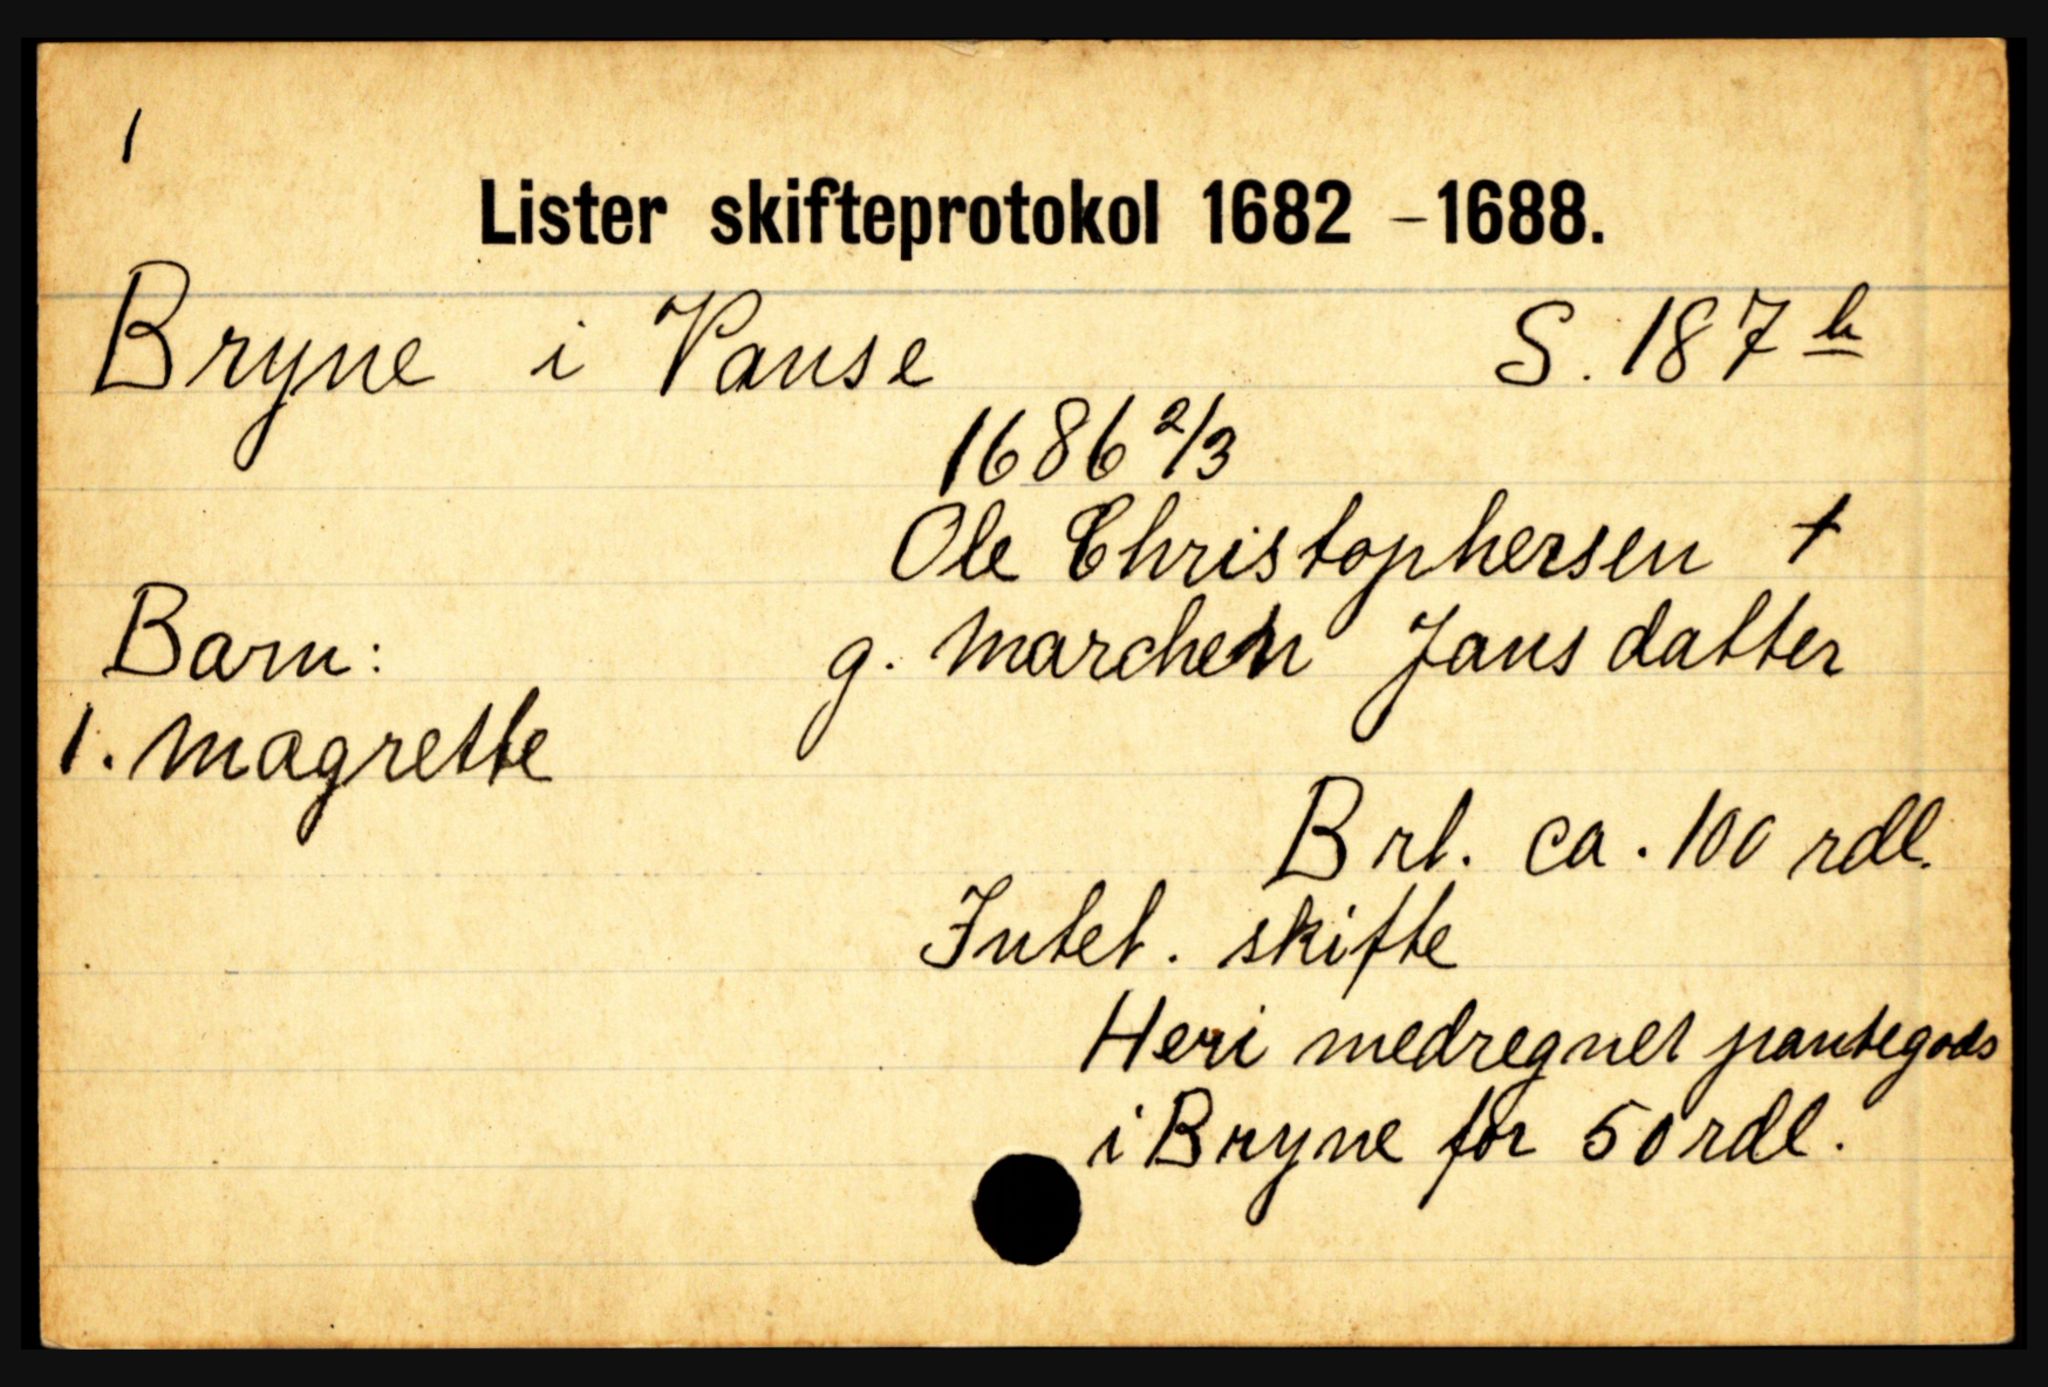 1
Lister skifteprotokol 1682 - 1688.
Bryne i Vanse S. 187 b
1686 2/3
Ole Christophersen †
Barn: g. Marchen Jansdatter
1. Magrette
Brt. ca. 100 rdl.
Intet. skifte
Heri medregnet pantegods
i Bryne for 50 rdl.